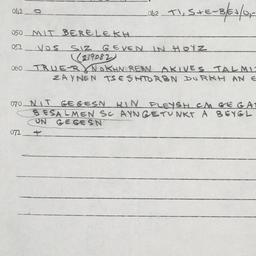 042 0 042 TI, S+E-B
050 MIT BERELEKH
052 VOS SIZ GEVEN IN HOYZ
(219082)
060 TRUER NOKHN REBN AKIVES TALMI
ZAYNEN TSESHTORBN DURKH AN E
070 NIT GEGESN KIN FLEYSH CM GEGA
BESALMEN SC AYNGETUNKT A BEYGL
UN GEGESN
071 +